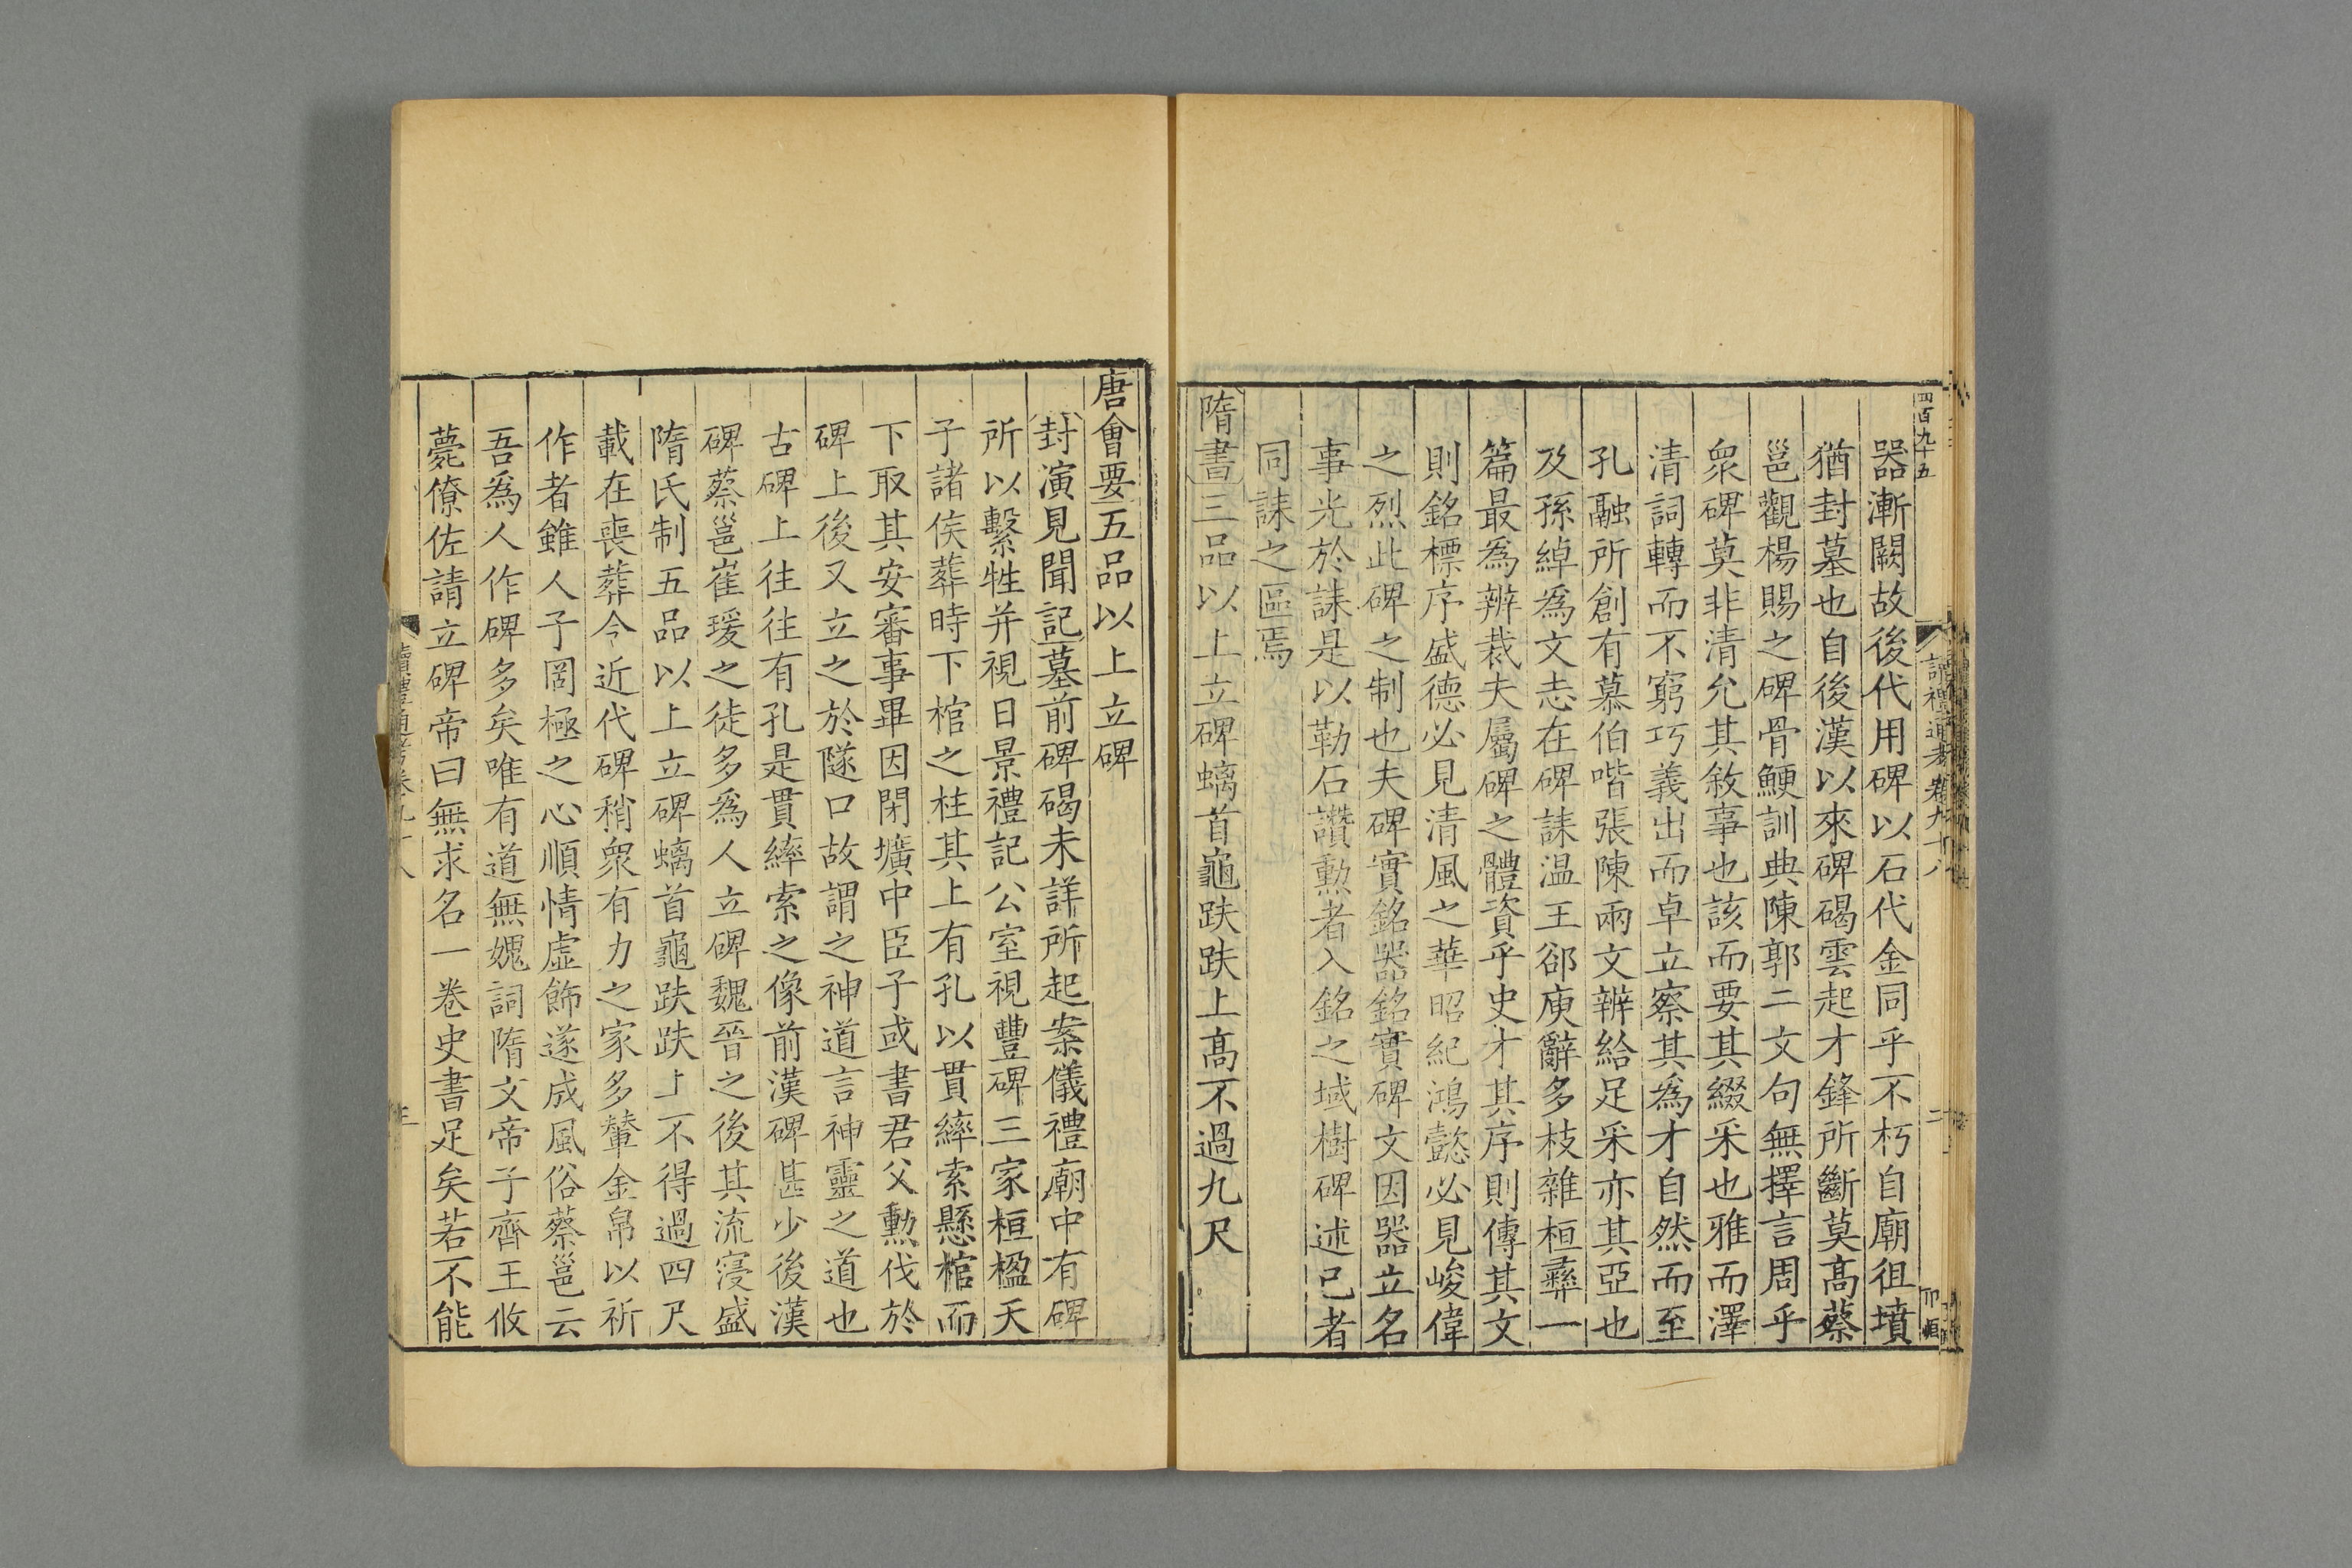 四百九十五
讀禮通考卷九十八
二
器漸闕故後代用碑以石代金同乎不朽自廟徂墳
猶封墓也自後漢以來碑碣雲起才鋒所斷莫高蔡
邕觀楊賜之碑骨鯁訓典陳郭二文句無擇言周乎
眾碑莫非清允其敘事也該而要其綴采也雅而澤
清詞轉而不窮巧義出而卓立察其為才自然而至
孔融所創有慕伯喈張陳兩文辨給足采亦其亞也
及孫綽為文志在碑誄温王郤庾辭多枝雜桓彞一
篇最為辨裁夫屬碑之體資乎史才其序則傳其文
則銘標序盛德必見清風之華昭紀鴻懿必見峻偉
之烈此碑之制也夫碑實銘器銘實碑文因器立名
事光於誄是以勒石讚勲者入銘之域樹碑述己者
同誄之區焉
隋書三品以上立碑螭首龜趺趺上高不過九尺
唐會要五品以上立碑
封演見聞記墓前碑碣未詳所起案儀禮廟中有碑
所以繫牲并視日景禮記公室視豐碑三家桓楹天
子諸侯葬時下棺之柱其上有孔以貫繂索懸棺而
下取其安審事畢因閉壙中臣子或書君父勲伐於
碑上後又立之於隧口故謂之神道言神靈之道也
古碑上往往有孔是貫繂索之像前漢碑甚少後漢
碑蔡邕崔瑗之徒多為人立碑魏晉之後其流寖盛
隋氏制五品以上立碑螭首龜趺趺上不得過四尺
載在喪葬令近代碑稍眾有力之家多輦金帛以祈
作者雖人子罔極之心順情虛飾遂成風俗蔡邕云
吾為人作碑多矣唯有道無媿詞隋文帝子齊王攸
薨僚佐請立碑帝曰無求名一卷史書足矣若不能
讀禮通考卷九十八
三